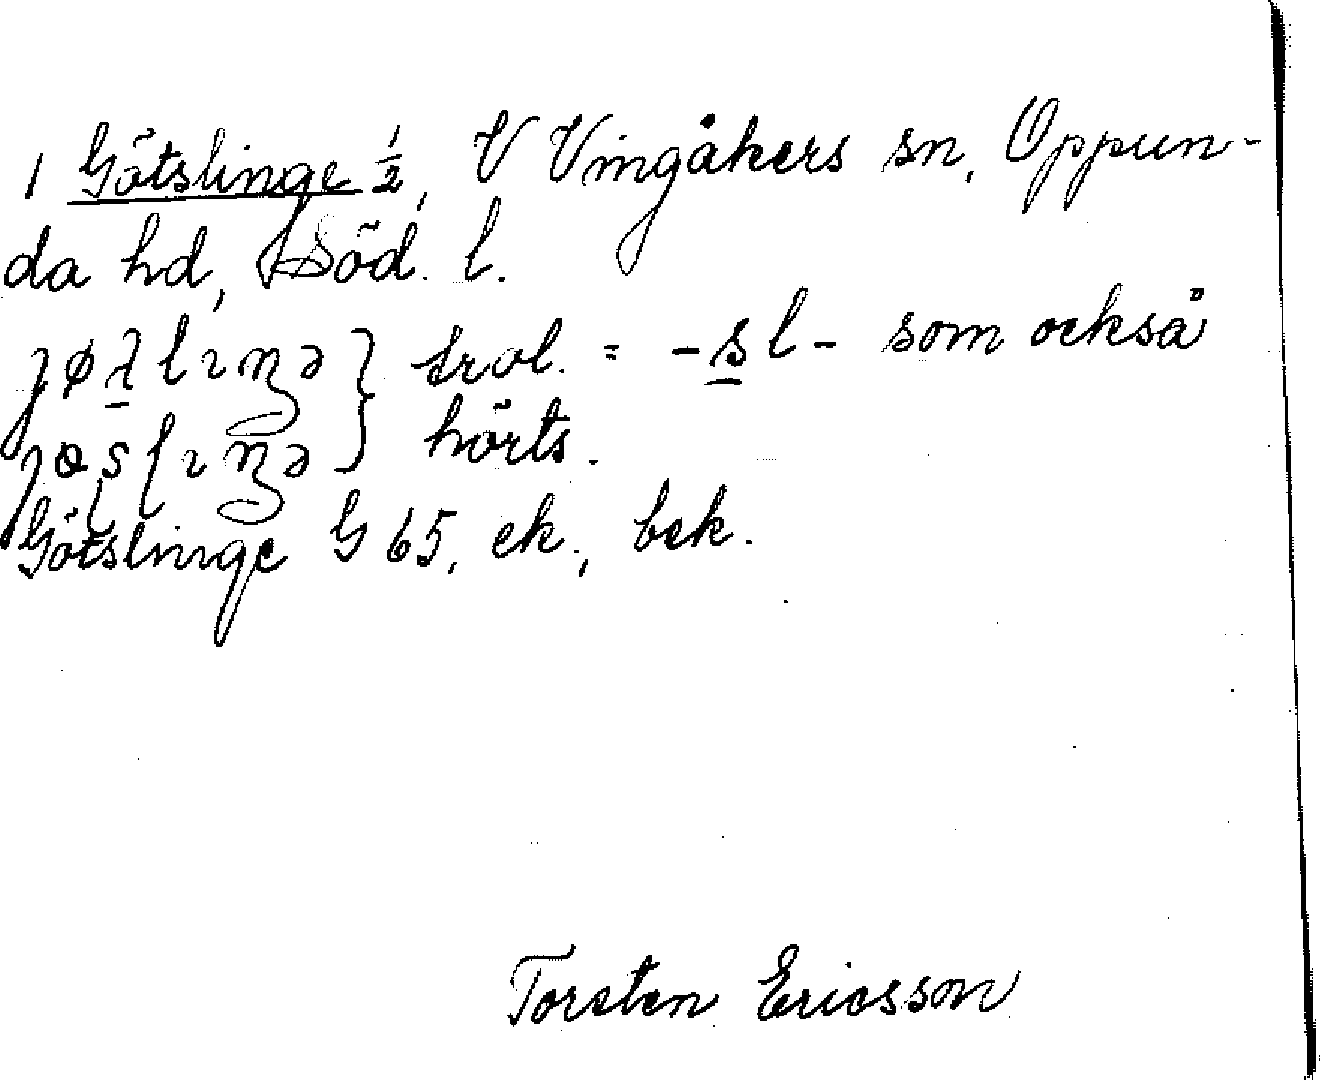 1 Götslinge ½, V Vingåkers sn, Oppun-
da hd, Söd. l.
trol. = -sl- som också
hörts.
Götslinge G 65, ek., bek.
Torsten Ericsson